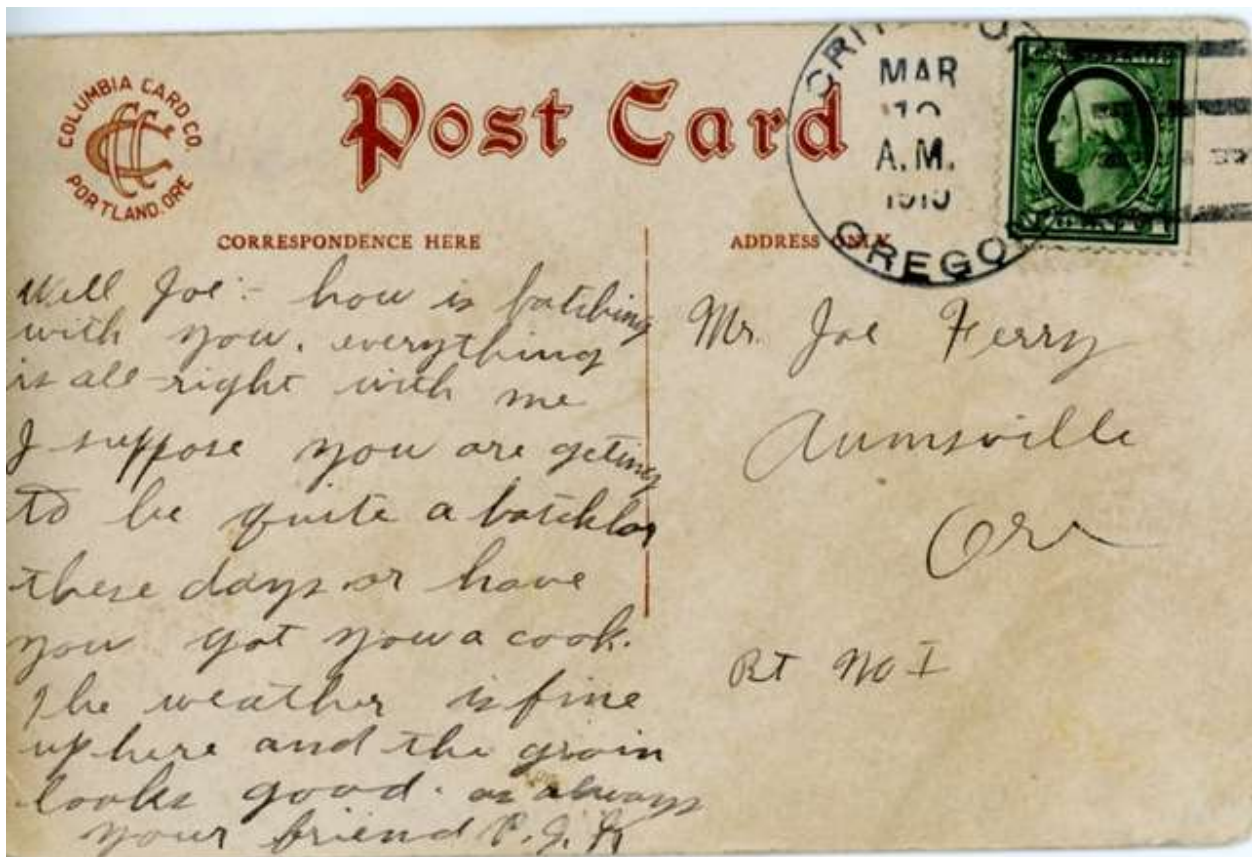 COLUMBIA CARD CO.
PORTLAND, ORE
Post Card
MAR
A.M.
OREGON
CORRESPONDENCE HERE
ADDRESS ONLY
Well Joe:- how is batching
with you. everything
is all-right with me
I suppose you are geting
to be quite a batchlor
these days or have
you got you a cook.
The weather is fine
up here and the grain
looks good. as always
your friend P. J. K
Mr. Joe Ferry
Aumsville
Ore
Rt No I